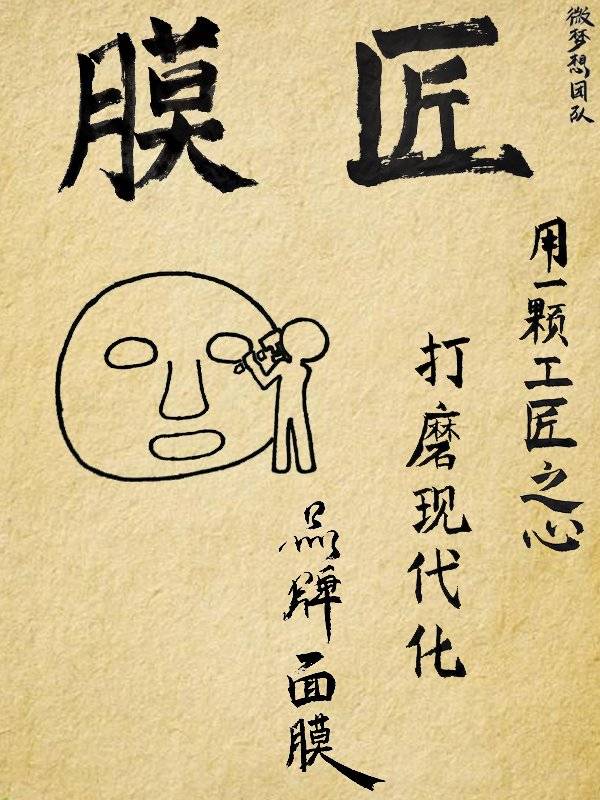 膜匠
微梦想团队
用一颗工匠之心
打磨现代化
品牌面膜